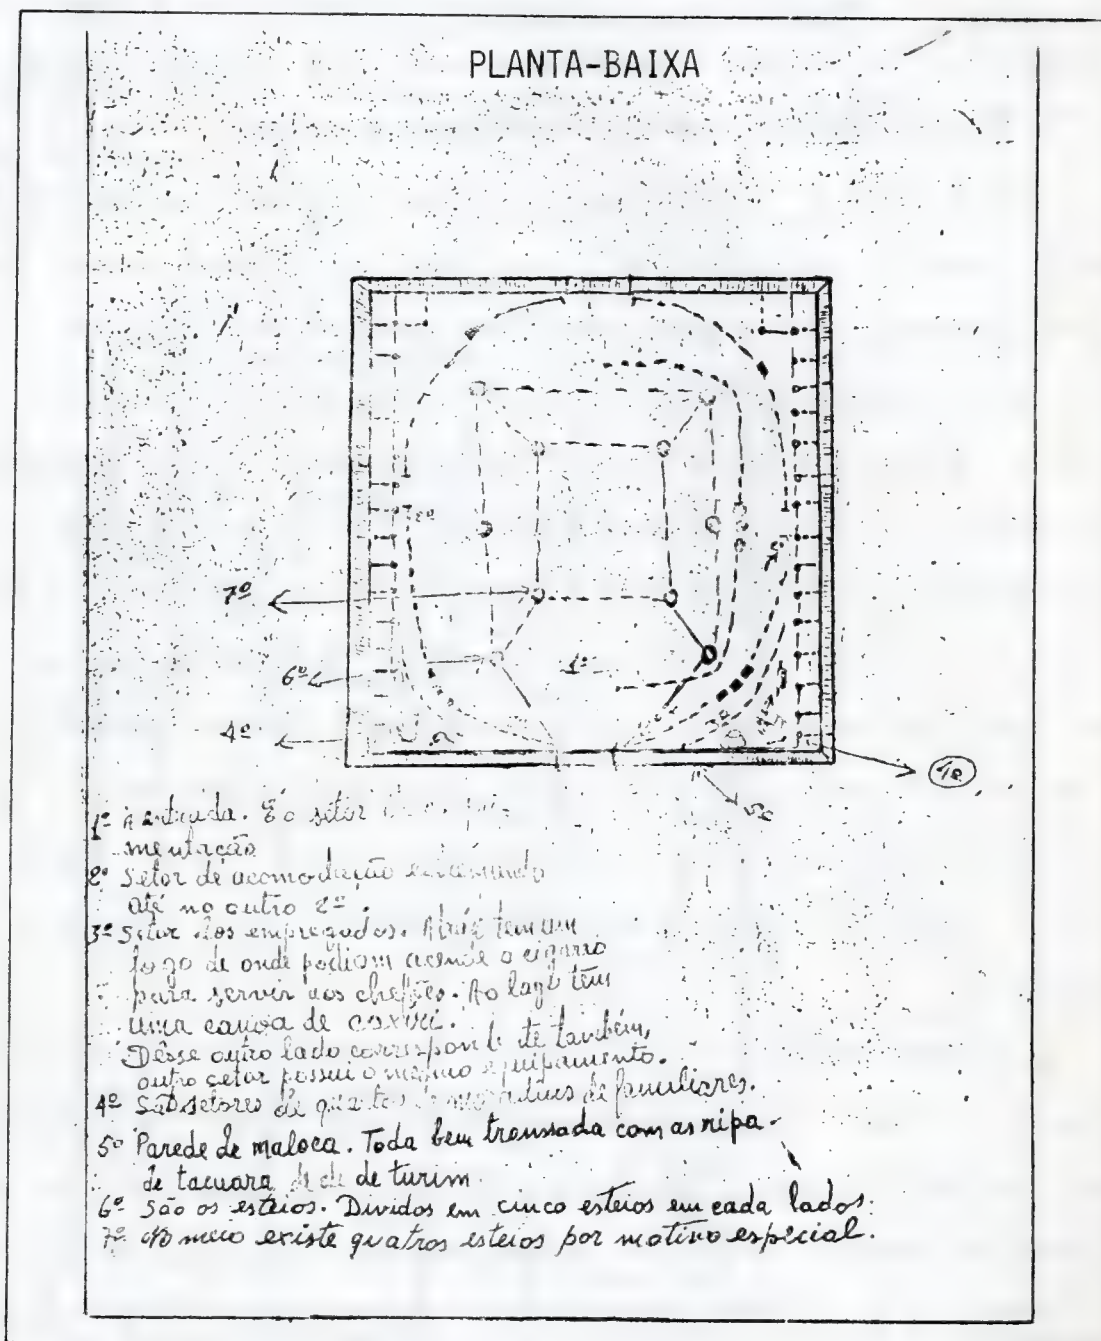 PLANTA-BAIXA
2º
7º
1º
6º
4º
4º
5º
1º A entrada. É o setor
mentação
2º Setor de acomodação
até no outro 2º.
3º Setor dos empregados. Atráz tem um
fogo de onde podiam acende o cigarro
para servir aos chefões. Ao lago têm
uma canoa de caxiri.
Dêsse outro lado também,
outro cetor possui o mesmo equipamento.
4º Sub setores de de familiares.
5º Parede de maloca. Toda bem transsada com as ripa
de tacuara de turim.
6º São os esteios. Dividos em cinco esteios em cada lados.
7º No meio existe quatros esteios por motivo especial.